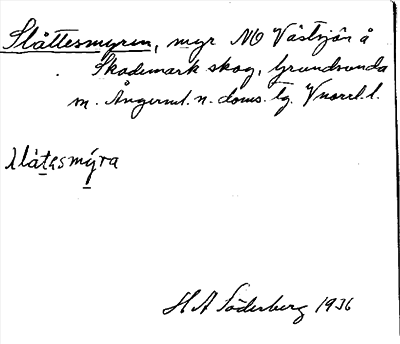 Slåttesmyren, myr NO Västsjön å
Skademark skog, Grundsunda
sn. Ångerml. n. doms. tg. Vnorrl. l.
slåtesmýra
H A Söderberg 1936